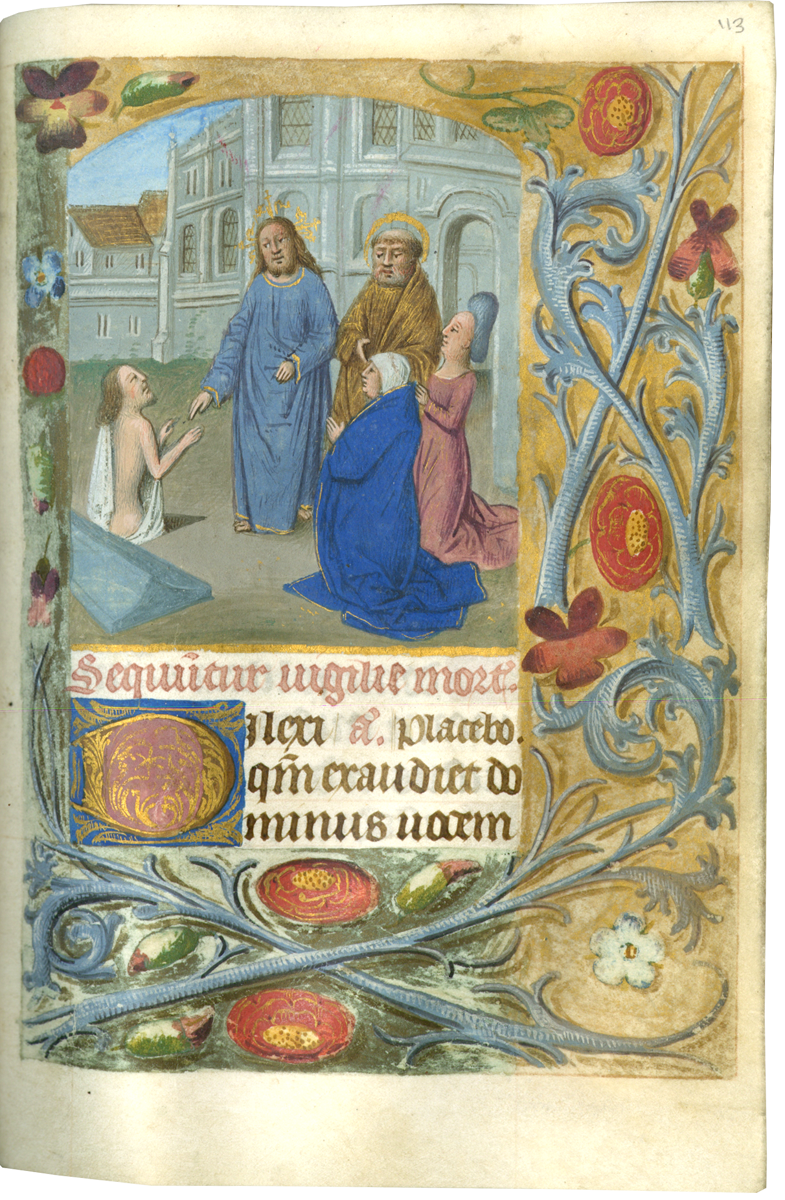 113
Sequūtur uigilie mort̃.
Dilexi ā. Placebo.
qm̄ exaudiet do
minus uocem